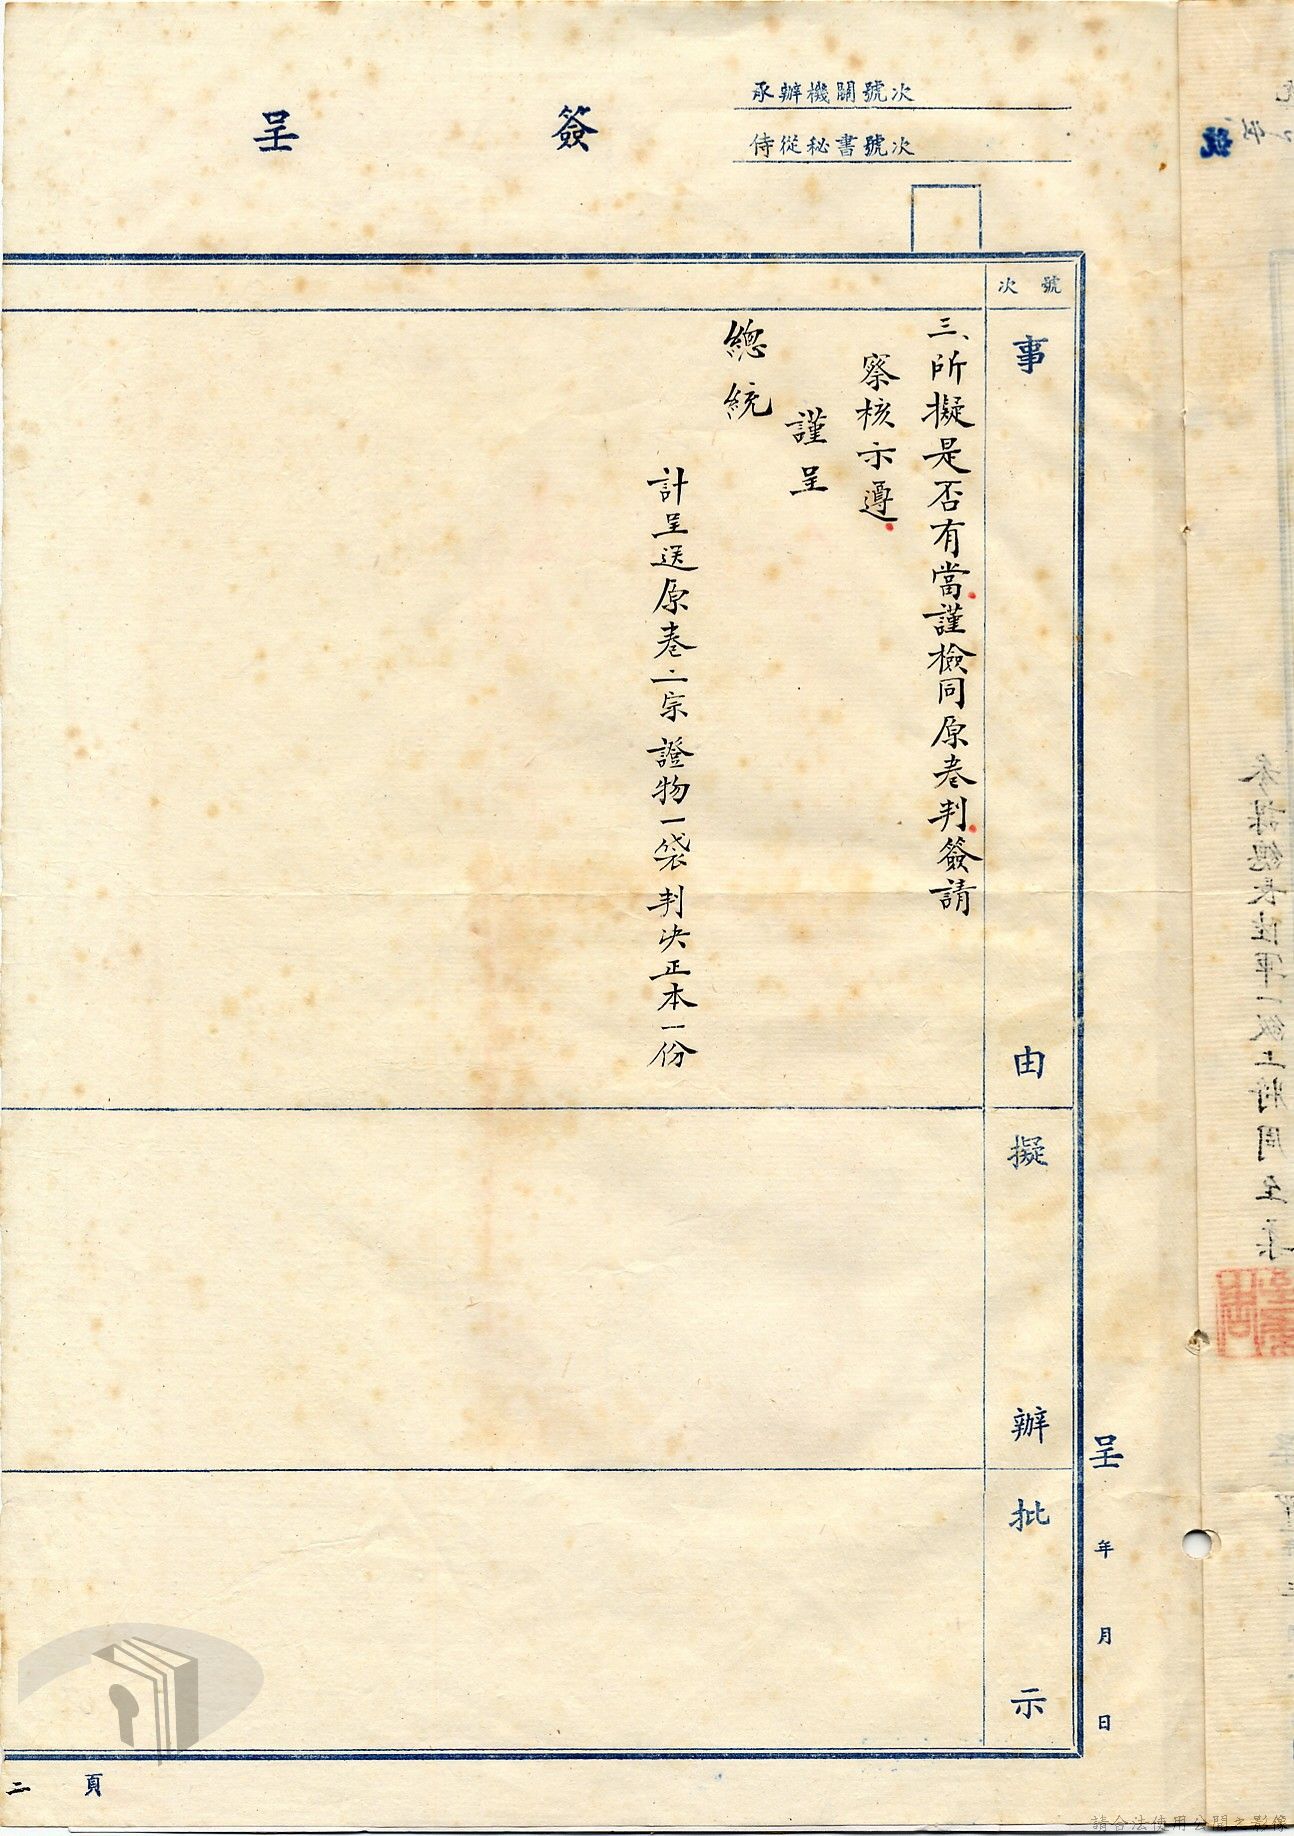 承辦機關號次
侍從秘書號次
簽呈
號次
事由
擬辦
批示
三、所擬是否有當謹檢同原卷判簽請
察核示遵
謹呈
總統
計呈送原卷二宗證物一袋判決正本一份
呈 年 月 日
頁二
號
參謀總長陸軍一級上將周至柔
請合法使用公開之影像